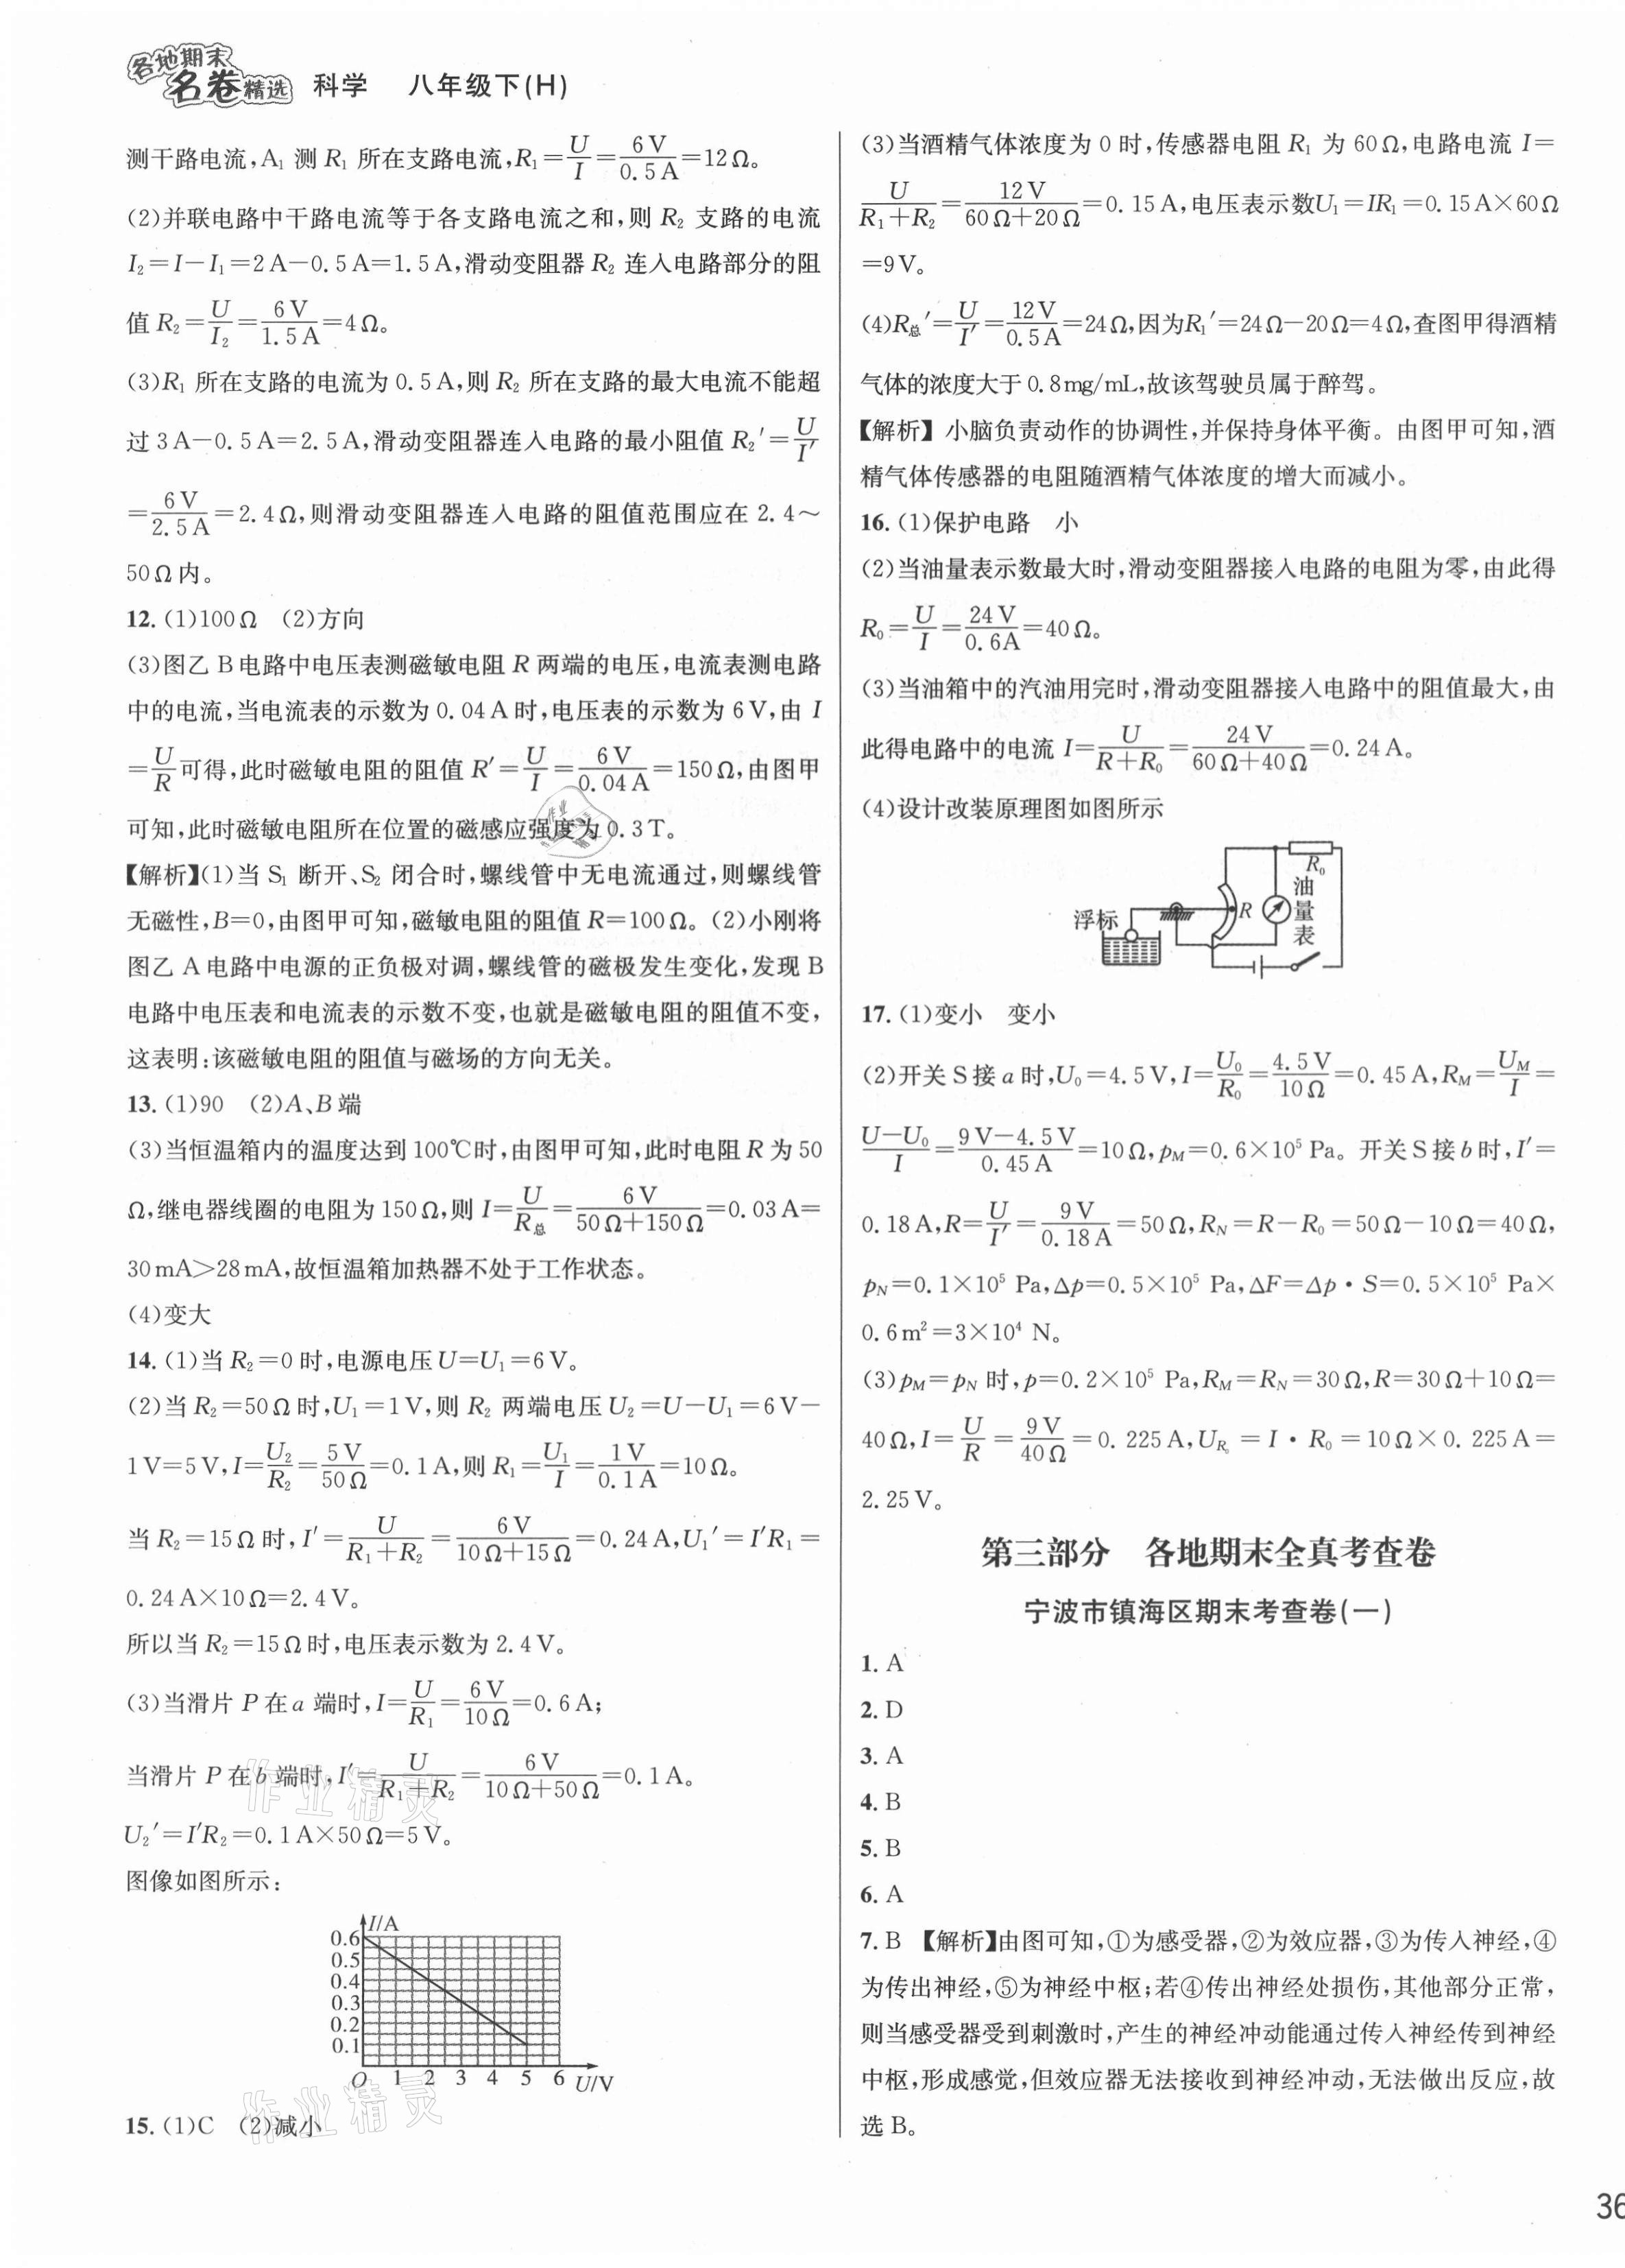 各地期末
名卷精选 科学 八年级下(H)
测干路电流,A₁ 测 R₁ 所在支路电流,R₁=U/I=6 V/0.5 A=12 Ω。
(2)并联电路中干路电流等于各支路电流之和,则 R₂ 支路的电流
I₂=I−I₁=2 A−0.5 A=1.5 A,滑动变阻器 R₂ 连入电路部分的阻
值 R₂=U/I₂=6 V/1.5 A=4 Ω。
(3)R₁ 所在支路的电流为 0.5 A,则 R₂ 所在支路的最大电流不能超
过 3 A−0.5 A=2.5 A,滑动变阻器连入电路的最小阻值 R₂′=U/I′
=6 V/2.5 A=2.4 Ω,则滑动变阻器连入电路的阻值范围应在 2.4~
50 Ω 内。
12. (1)100 Ω (2)方向
(3)图乙 B 电路中电压表测磁敏电阻 R 两端的电压,电流表测电路
中的电流,当电流表的示数为 0.04 A 时,电压表的示数为 6 V,由 I
=U/R可得,此时磁敏电阻的阻值 R′=U/I=6 V/0.04 A=150 Ω,由图甲
可知,此时磁敏电阻所在位置的磁感应强度为 0.3 T。
【解析】(1)当 S₁ 断开、S₂ 闭合时,螺线管中无电流通过,则螺线管
无磁性,B=0,由图甲可知,磁敏电阻的阻值 R=100 Ω。(2)小刚将
图乙 A 电路中电源的正负极对调,螺线管的磁极发生变化,发现 B
电路中电压表和电流表的示数不变,也就是磁敏电阻的阻值不变,
这表明:该磁敏电阻的阻值与磁场的方向无关。
13. (1)90 (2)A、B 端
(3)当恒温箱内的温度达到 100℃时,由图甲可知,此时电阻 R 为 50
Ω,继电器线圈的电阻为 150 Ω,则 I=U/R总=6 V/(50 Ω+150 Ω)=0.03 A=
30 mA>28 mA,故恒温箱加热器不处于工作状态。
(4)变大
14. (1)当 R₂=0 时,电源电压 U=U₁=6 V。
(2)当 R₂=50 Ω 时,U₁=1 V,则 R₂ 两端电压 U₂=U−U₁=6 V−
1 V=5 V,I=U₂/R₂=5 V/50 Ω=0.1 A,则 R₁=U₁/I=1 V/0.1 A=10 Ω。
当 R₂=15 Ω 时,I′=U/(R₁+R₂)=6 V/(10 Ω+15 Ω)=0.24 A,U₁′=I′R₁=
0.24 A×10 Ω=2.4 V。
所以当 R₂=15 Ω 时,电压表示数为 2.4 V。
(3)当滑片 P 在 a 端时,I=U/R₁=6 V/10 Ω=0.6 A;
当滑片 P 在 b 端时,I′=U/(R₁+R₂)=6 V/(10 Ω+50 Ω)=0.1 A。
U₂′=I′R₂=0.1 A×50 Ω=5 V。
图像如图所示:
I/A
0.6
0.5
0.4
0.3
0.2
0.1
O 1 2 3 4 5 6 U/V
15. (1)C (2)减小
(3)当酒精气体浓度为 0 时,传感器电阻 R₁ 为 60 Ω,电路电流 I=
U/(R₁+R₂)=12 V/(60 Ω+20 Ω)=0.15 A,电压表示数U₁=IR₁=0.15 A×60 Ω
=9 V。
(4)R总′=U/I′=12 V/0.5 A=24 Ω,因为R₁′=24 Ω−20 Ω=4 Ω,查图甲得酒精
气体的浓度大于 0.8 mg/mL,故该驾驶员属于醉驾。
【解析】小脑负责动作的协调性,并保持身体平衡。由图甲可知,酒
精气体传感器的电阻随酒精气体浓度的增大而减小。
16. (1)保护电路 小
(2)当油量表示数最大时,滑动变阻器接入电路的电阻为零,由此得
R₀=U/I=24 V/0.6A=40 Ω。
(3)当油箱中的汽油用完时,滑动变阻器接入电路中的阻值最大,由
此得电路中的电流 I=U/(R+R₀)=24 V/(60 Ω+40 Ω)=0.24 A。
(4)设计改装原理图如图所示
R₀
浮标 R 油量表
17. (1)变小 变小
(2)开关 S 接 a 时,U₀=4.5 V,I=U₀/R₀=4.5 V/10 Ω=0.45 A,R_M=U_M/I=
(U−U₀)/I=(9 V−4.5 V)/0.45 A=10 Ω,p_M=0.6×10⁵ Pa。开关 S 接 b 时,I′=
0.18 A,R=U/I′=9 V/0.18 A=50 Ω,R_N=R−R₀=50 Ω−10 Ω=40 Ω,
p_N=0.1×10⁵ Pa,Δp=0.5×10⁵ Pa,ΔF=Δp·S=0.5×10⁵ Pa×
0.6 m²=3×10⁴ N。
(3)p_M=p_N 时,p=0.2×10⁵ Pa,R_M=R_N=30 Ω,R=30 Ω+10 Ω=
40 Ω,I=U/R=9 V/40 Ω=0.225 A,U_R₀=I·R₀=10 Ω×0.225 A=
2.25 V。
第三部分 各地期末全真考查卷
宁波市镇海区期末考查卷(一)
1. A
2. D
3. A
4. B
5. B
6. A
7. B 【解析】由图可知,①为感受器,②为效应器,③为传入神经,④
为传出神经,⑤为神经中枢;若④传出神经处损伤,其他部分正常,
则当感受器受到刺激时,产生的神经冲动能通过传入神经传到神经
中枢,形成感觉,但效应器无法接收到神经冲动,无法做出反应,故
选 B。
作业精灵
作业精灵
36